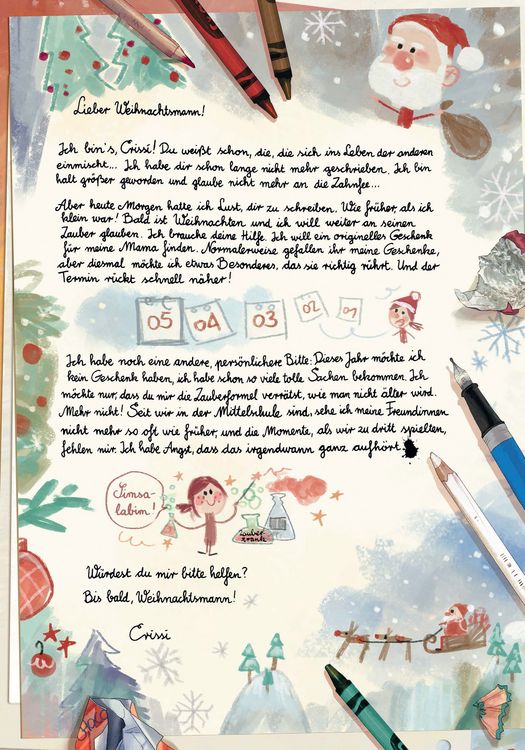 Lieber Weihnachtsmann!
Ich bin's, Crissi! Du weißt schon, die, die sich ins Leben der anderen
einmischt... Ich habe dir schon lange nicht mehr geschrieben. Ich bin
halt größer geworden und glaube nicht mehr an die Zahnfee...
Aber heute Morgen hatte ich Lust, dir zu schreiben. Wie früher, als ich
klein war! Bald ist Weihnachten und ich will weiter an seinen
Zauber glauben. Ich brauche deine Hilfe. Ich will ein originelles Geschenk
für meine Mama finden. Normalerweise gefallen ihr meine Geschenke,
aber diesmal möchte ich etwas Besonderes, das sie richtig rührt. Und der
Termin rückt schnell näher!
05 04 03 02 01
Ich habe noch eine andere, persönlichere Bitte: Dieses Jahr möchte ich
kein Geschenk haben, ich habe schon so viele tolle Sachen bekommen. Ich
möchte nur, dass du mir die Zauberformel verrätst, wie man nicht älter wird.
Mehr nicht! Seit wir in der Mittelschule sind, sehe ich meine Freundinnen
nicht mehr so oft wie früher, und die Momente, als wir zu dritt spielten,
fehlen mir. Ich habe Angst, dass das irgendwann ganz aufhört.
Simsa-
labim!
Zauber-
trank
Würdest du mir bitte helfen?
Bis bald, Weihnachtsmann!
Crissi